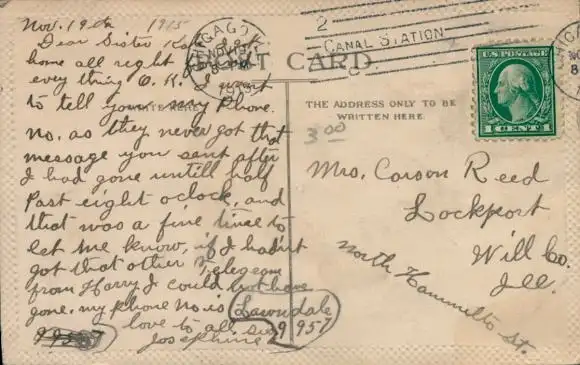 Nov. 19th 1915
Dear Sister Kate
home all right
every thing O.K. I want
to tell you my Phone
no, as they never got that
message you sent after
I had gone untill half
Past eight oclock, and
that was a fine time to
let me know, if I hadnt
got that other Telegram
from Harry I could not have
gone. my Phone no is Lawndale
9957
love to all sis
Josephine
CHICAGO
NOV 19
1915
2
CANAL STATION
C
POST CARD
U.S. POSTAGE
1 CENT 1
THE ADDRESS ONLY TO BE
WRITTEN HERE
3.00
Mrs. Carson Reed
Lockport
Will Co.
Ill.
North Hammilto St.